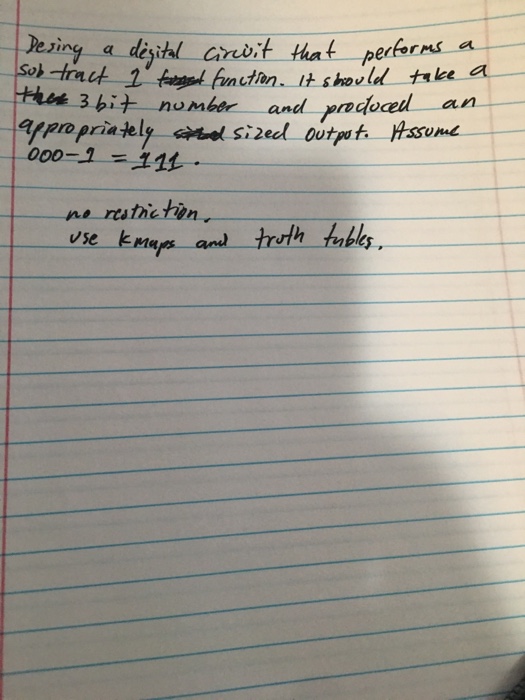 Desing a digital circuit that performs a
sub-tract 1 function. It should take a
3 bit number and produced an
appropriately sized output. Assume
000-1 = 111.
no restriction.
use kmaps and truth tubles.